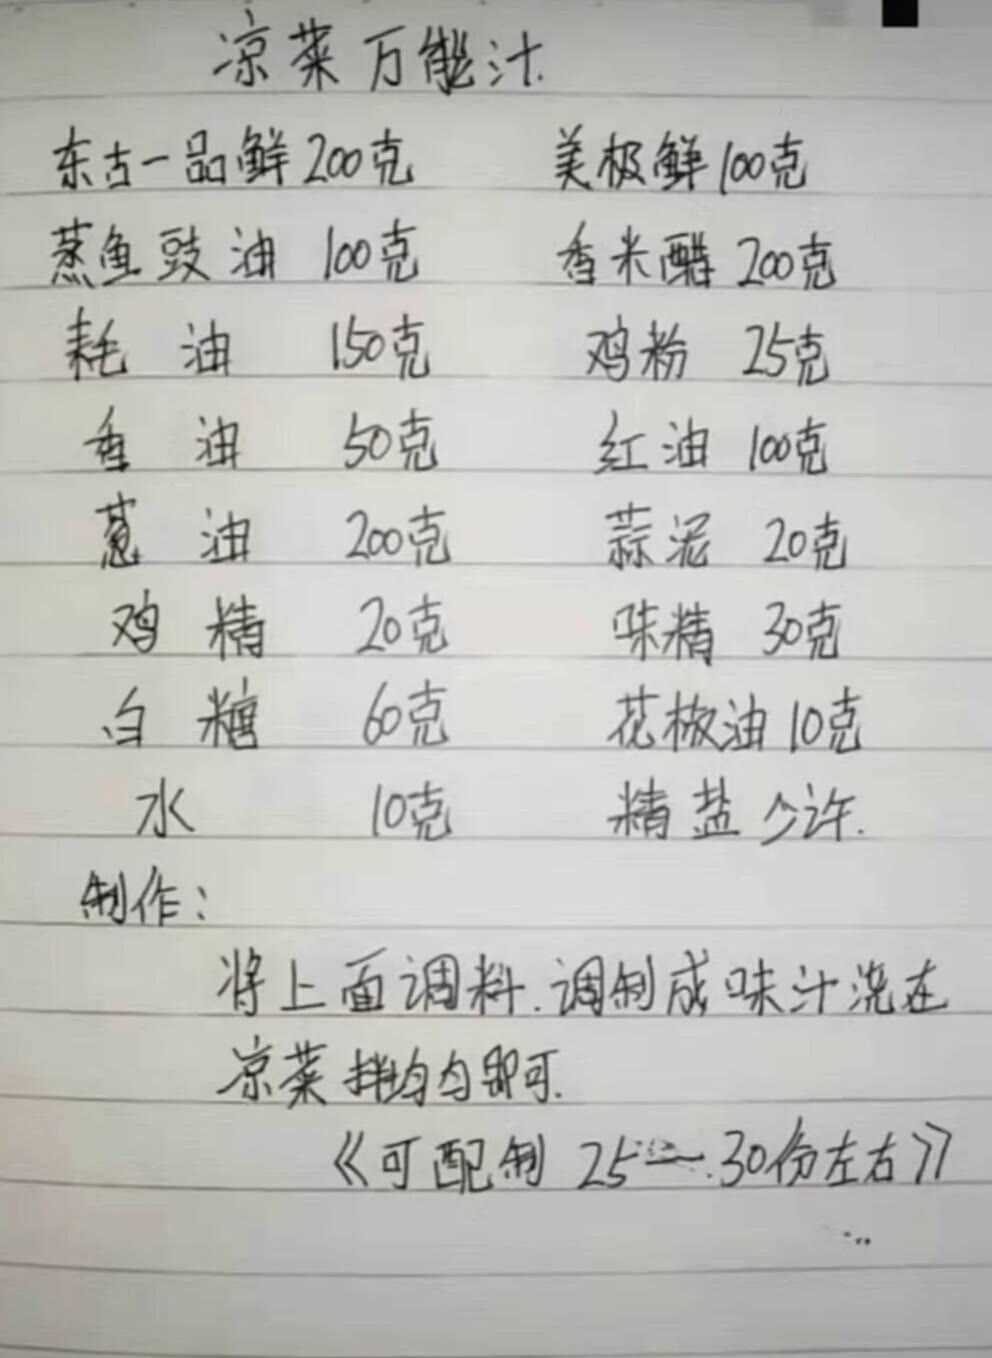 凉菜万能汁.
东古一品鲜 200克 美极鲜 100克
蒸鱼豉油 100克 香米醋 200克
耗油 150克 鸡粉 25克
香油 50克 红油 100克
葱油 200克 蒜泥 20克
鸡精 20克 味精 30克
白糖 60克 花椒油 10克
水 10克 精盐少许.
制作:
将上面调料.调制成味汁浇在
凉菜拌均匀即可.
《可配制 25一30份左右》